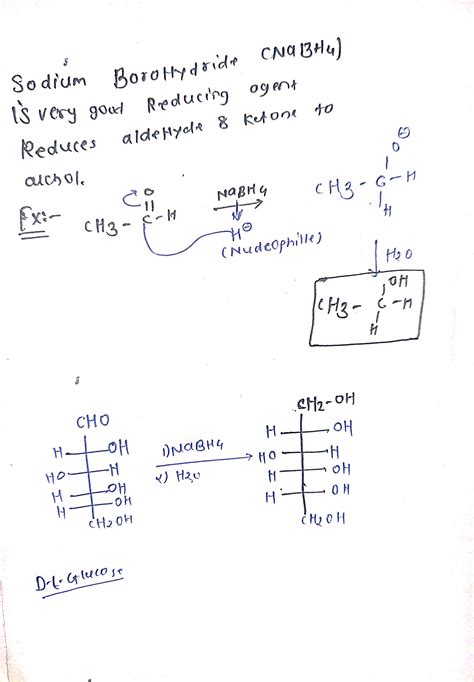 Sodium BoroHydride (NaBH4)
is very good Reducing agent
Reduces aldeHyde & Ketone to
alchol.
Ex:-
CH3 - C - H
O
NaBH4
H⊖
(Nudeophille)
CH3 - C - H
O⊖
H
H2O
CH3 - C - H
OH
H
CHO
H OH
HO H
H OH
H OH
CH2OH
1) NaBH4
2) H2O
CH2-OH
H OH
HO H
H OH
H OH
CH2OH
D-L-Glucose